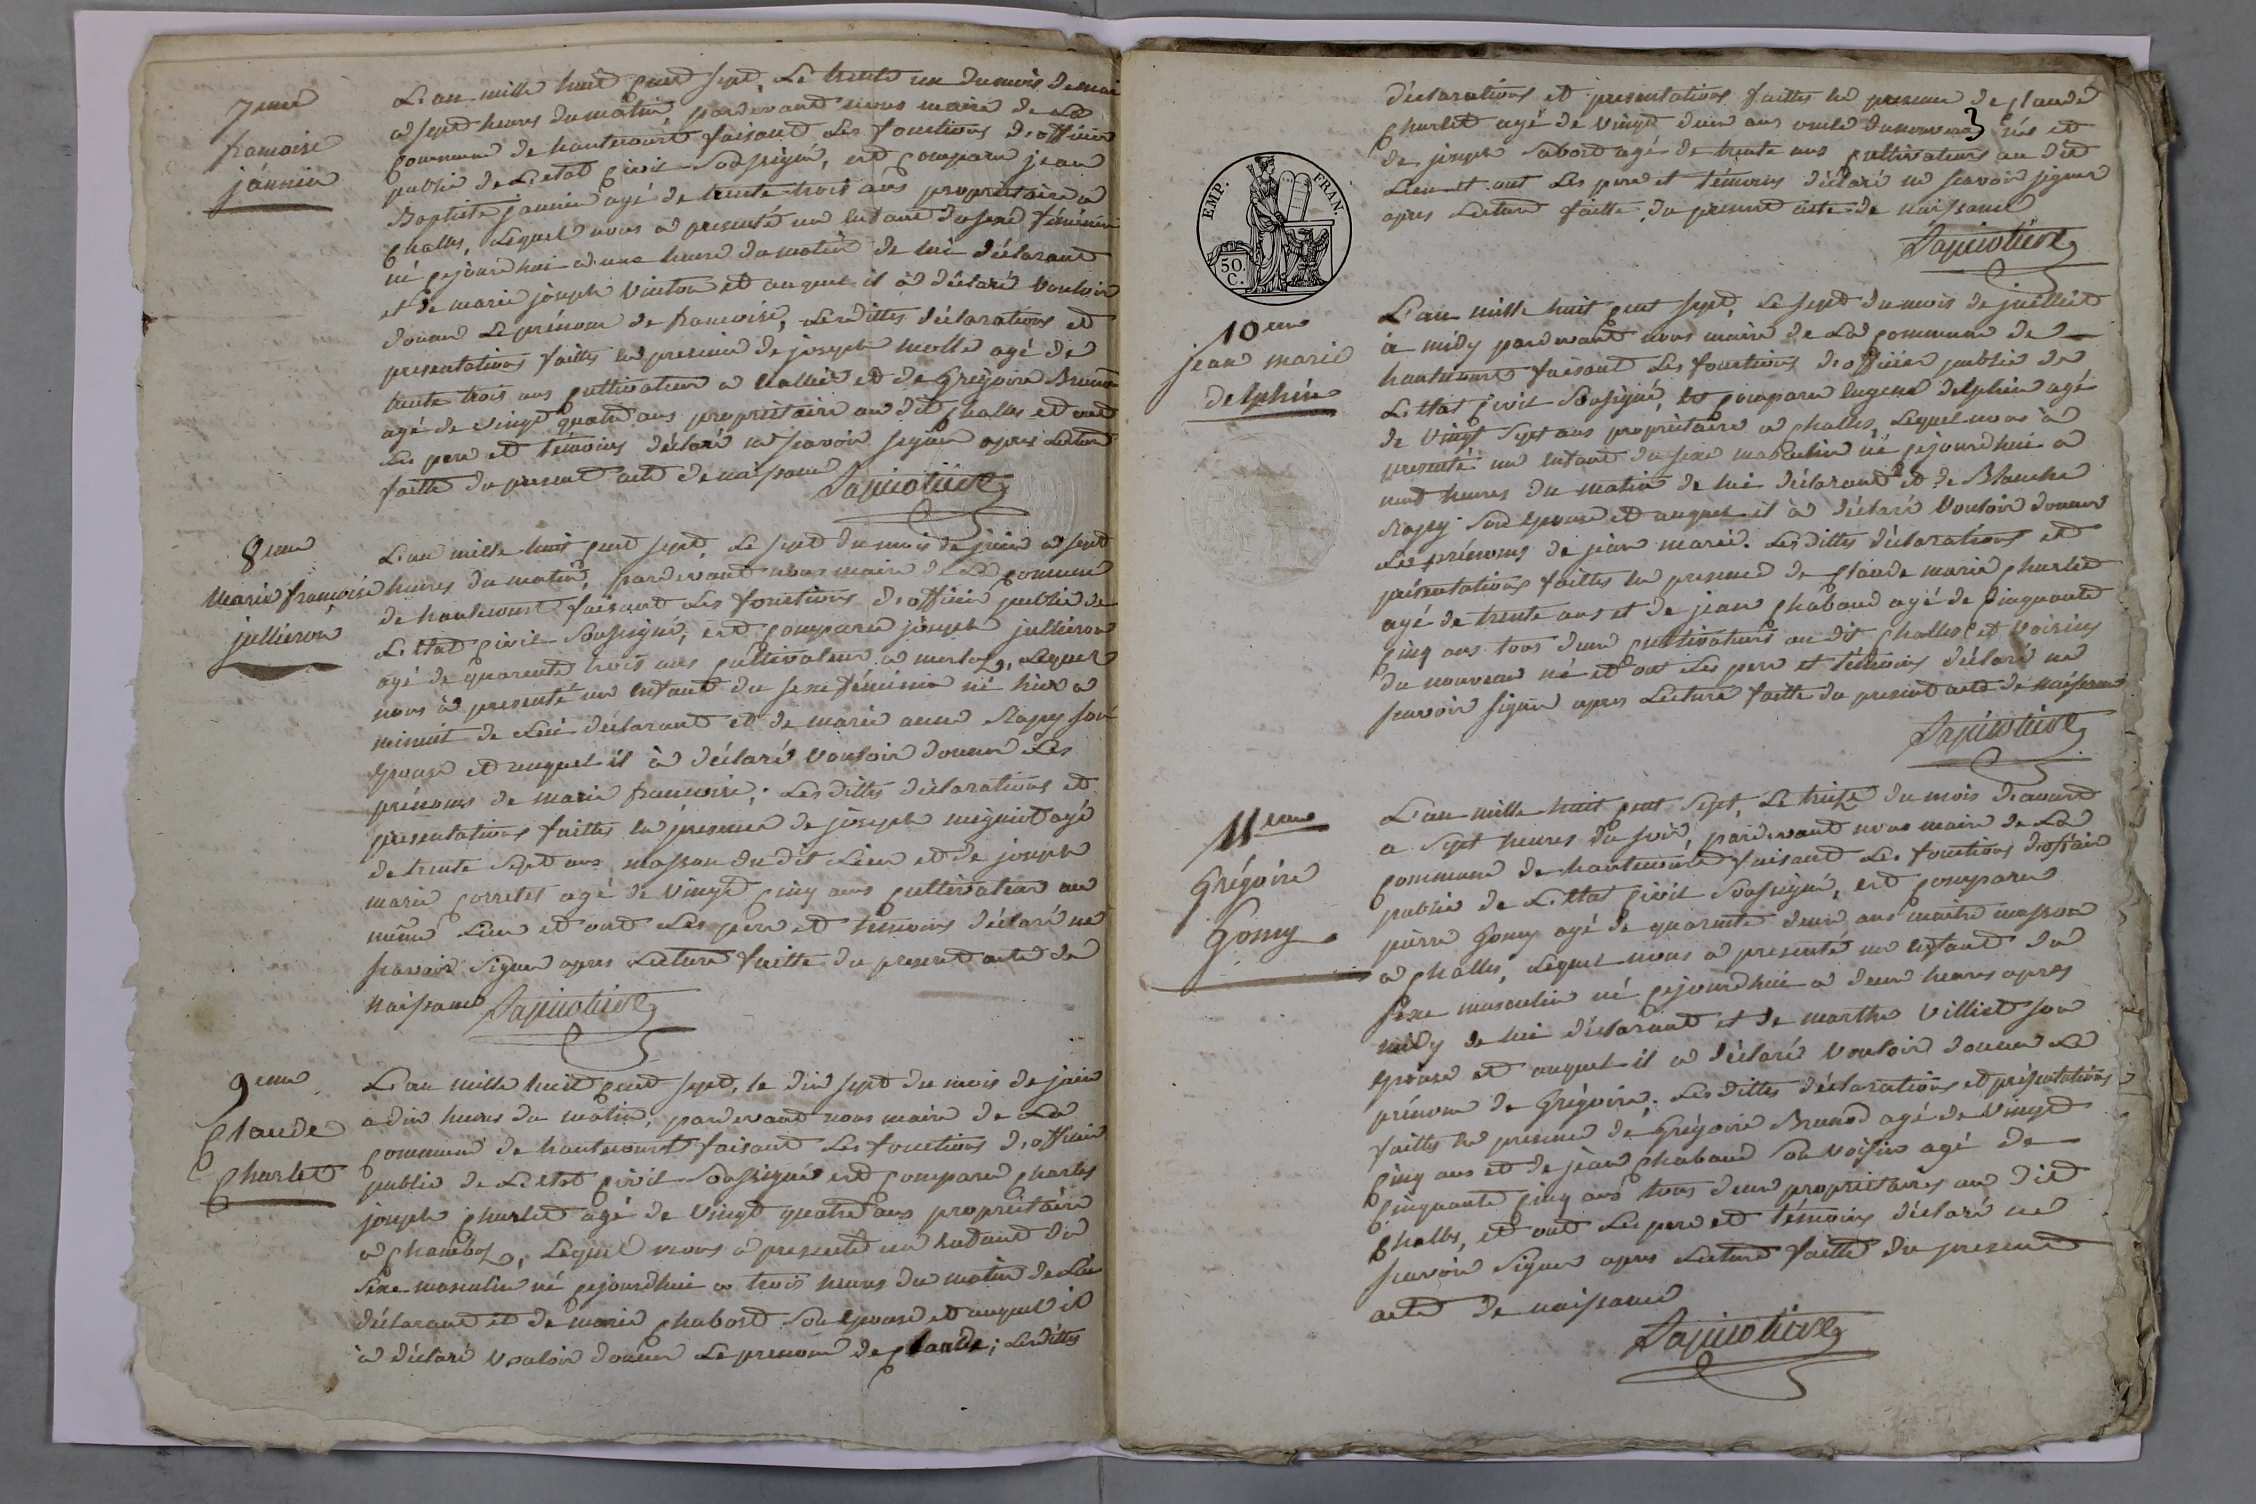 7eme
francoise
jannin
L'an mille huit cent sept, Le trente un du mois de mai
a sept heures du matin, pardevant nous maire de La
commune de hautecourt faisant Les fonctions d'officier
public de L'etat civil Soussigné, est comparu jean
Baptiste jannin agé de trente trois ans propriétaire a
challes, Lequel nous a presenté un enfant du sexe féminin
né cejourd'hui a une heure du matin de lui déclarant
et de marie joseph Vuiton et auquel il a déclaré Vouloir
donner Le prénom de francoise, Lesdittes déclarations et
presentations faittes en presence de joseph molle agé de
trente trois ans cultivateur a et de Grégoire Brunod
agé de vingt quatre ans propriétaire au dit challes et ont
Les pere et témoins déclaré ne scavoir signer apres Lecture
faitte du present acte de naissance
8eme
Marie françoise
jullieron
L'an mille huit cent sept, Le sept du mois de juin a sept
heures du matin, pardevant nous maire de La commune
de hautecourt faisant Les fonctions d'officier public de
L'ettat civil Soussigné, est comparu joseph jullieron
agé de quarente trois ans cultivateur a merloz, Lequel
nous a presenté un enfant du sexe féminin né hier a
minuit de Lui déclarant et de marie anne Rapey son
epouse et auquel il à déclaré Vouloir donner Les
prénoms de marie francoise; Lesdittes déclarations et
presentations faittes en presence de joseph mignot agé
de trente sept ans masson du dit Lieu et de joseph
marie corretet agé de Vingt cinq ans cultivateur au
même Lieu et ont Les pere et témoins déclaré ne
scavoir signer apres Lecture faitte du present acte de
naissance
9eme
Claude
Charlet
L'an mille huit cent sept, le dix sept du mois de juin
a dix heures du matin, pardevant nous maire de La
commune de hautecourt faisant Les fonctions d'officier
public de L'ettat civil Soussigné est comparu charles
joseph charlet agé de Vingt quatre ans propriétaire
a Chamboz, Lequel nous a presenté un enfant du
sexe masculin né cejourdhui a trois heures du matin de Lui
déclarant et de marie chabord son epouse et auquel il
a déclaré Vouloir donner Le prenom de Claude; Lesdittes
déclarations et presentations faittes en presence de claude
Charlet agé de Vingt deux ans oncle du nouveau né et
de joseph abord agé de trente ans cultivateurs au dit
Lieu et ont Les pere et témoins déclaré ne scavoir signer
apres Lecture faitte du present acte de naissance
EMP. FRAN.
50.
C.
10eme
jean marie
delphin
L'an mille huit cent sept, Le sept du mois de juillet
a midy pardevant nous maire de La commune de
hautecourt faisant Les fonctions d'officier public de
L'ettat civil Soussigné, est comparu eugene delphin agé
de Vingt sept ans propriétaire a challes, Lequel nous à
presenté un enfant du sexe masculin né cejourdhui a
neuf heures du matin de lui déclarant et de Blanche
Rapey son epouse et auquel il à déclaré Vouloir donner
Les prénoms de jean marie. Lesdittes déclarations et
présentations faittes en presence de claude marie charlet
agé de trente ans et de jean chabaud agé de cinquante
cinq ans tous deux cultivateurs au dit challes et voisins
du nouveau né et ont Les pere et témoins déclaré ne
scavoir signer apres Lecture faitte du present acte de naissance
11eme
Grégoire
Gomy
L'an mille huit cent sept, Le treize du mois d'aoust
a sept heures du soir, pardevant nous maire de La
commune de hautecourt faisant Les fonctions d'officier
public de L'ettat civil Soussigné, est comparu
pierre Gomy agé de quarente deux ans maitre masson
a challes, Lequel nous a presenté un enfant du
sexe masculin né cejourdhui a deux heures apres
midy de lui déclarant et de marthe Villiet son
epouse et auquel il a déclaré Vouloir donner Le
prénom de Grégoire. Lesdittes déclarations et présentations
faittes en presence de Grégoire Brunod agé de Vingt
cinq ans et de jean chabaud son voisin agé de
cinquante cinq ans tous deux propriétaires au dit
challes, et ont Les pere et témoins déclaré ne
scavoir signer apres Lecture faitte du present
acte de naissance